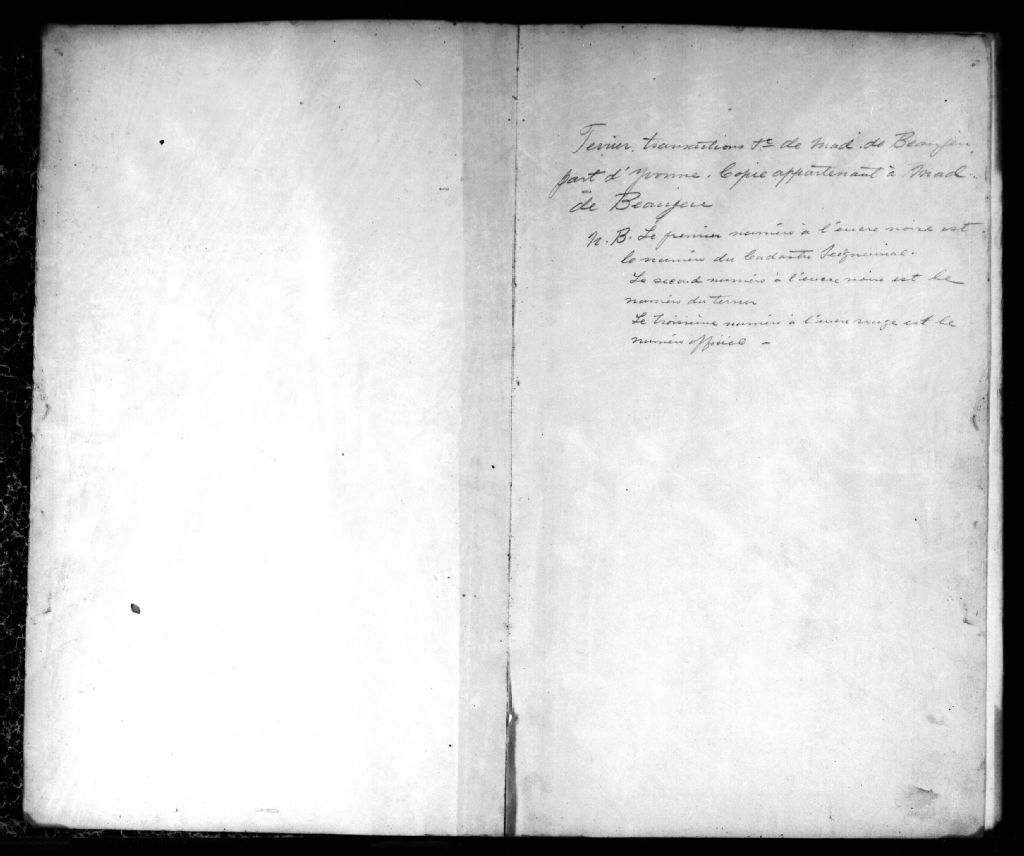 Terrier, transactions &c de Mad. de Beaujeu
part d'Yvonne. Copie appartenant à Mad.
de Beaujeu
N.B. Le premier numéro à l'encre noire est
le numéro du Cadastre Seigneurial.
Le second numéro à l'encre noire est le
numéro du terrier
Le troisième numéro à l'encre rouge est le
numéro officiel –